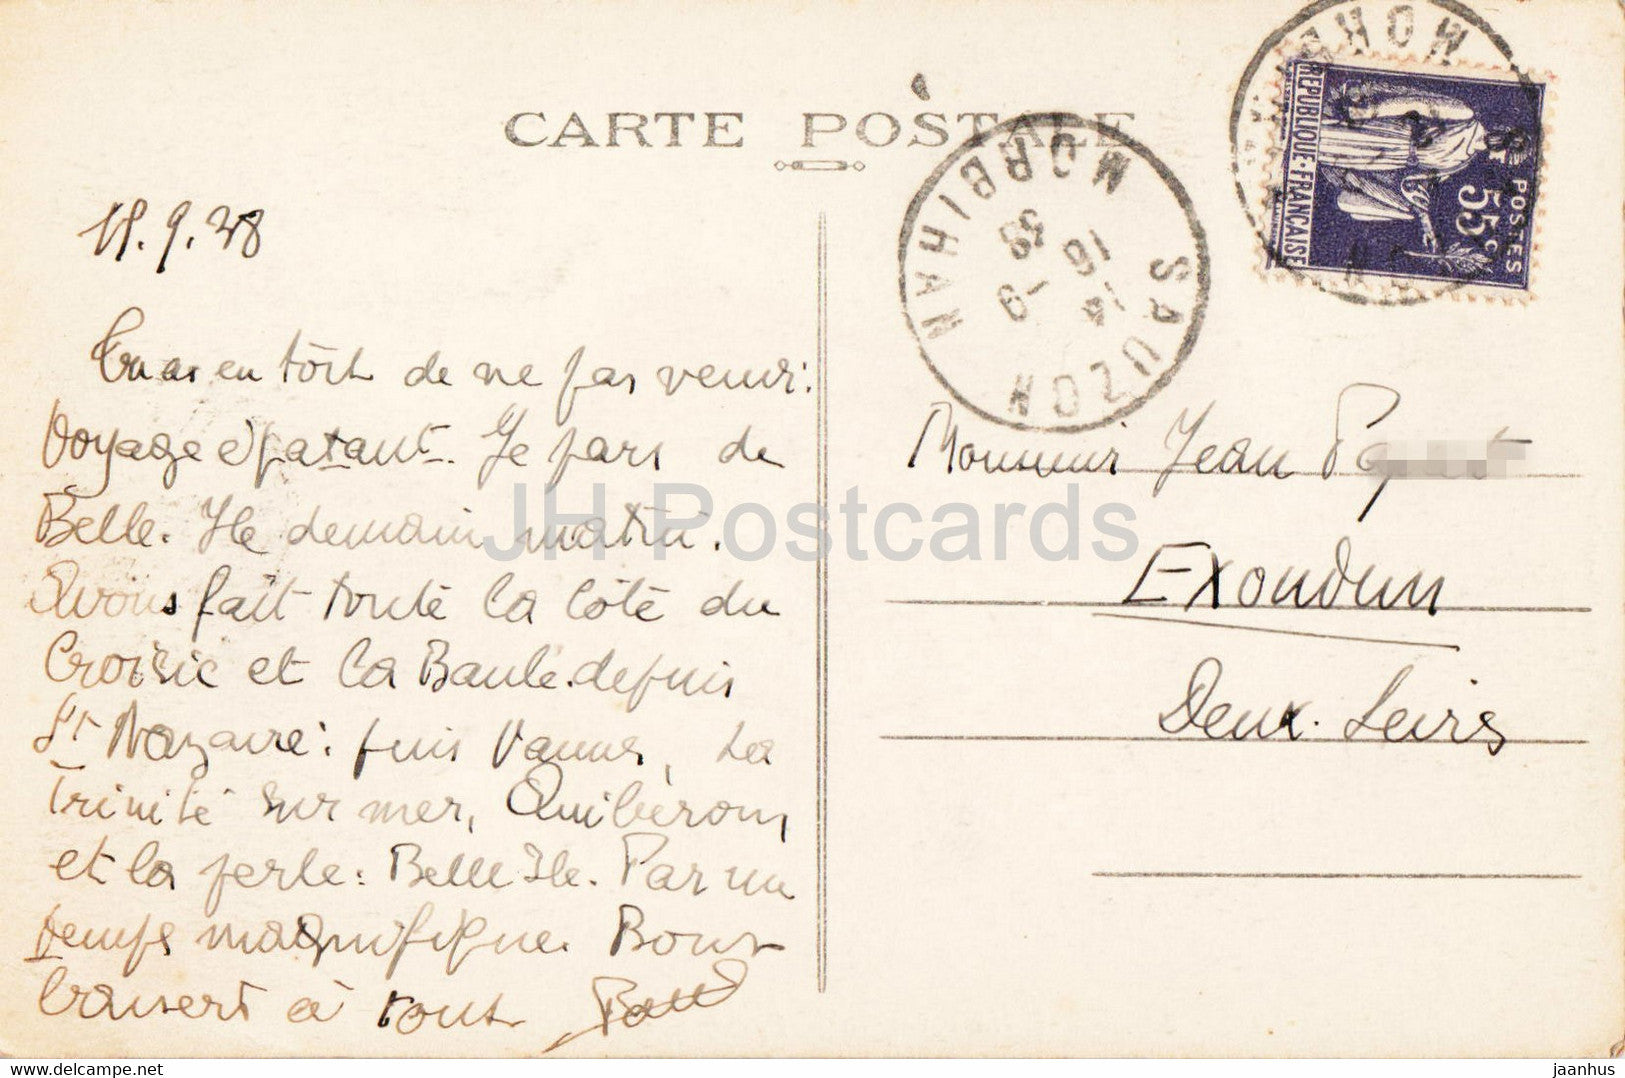 CARTE POSTALE
15.9.38
Tu as eu tort de ne pas venir:
Voyage épatant. Je pars de
Belle. Ile demain matin.
Avons fait toute la côte du
Croisic et la Baule depuis
St Nazaire: puis Vannes, La
Trinité sur mer, Quibéron,
et la perle: Belle Ile. Par un
temps magnifique. Bons
baisers à tous
SAUZON
MORBIHAN
16
14 - 9
38
REPUBLIQUE·FRANCAISE
POSTES
55c
MOR
Monsieur Jean
Exoudun
Deux-Sèvres
JH Postcards
jaanhus